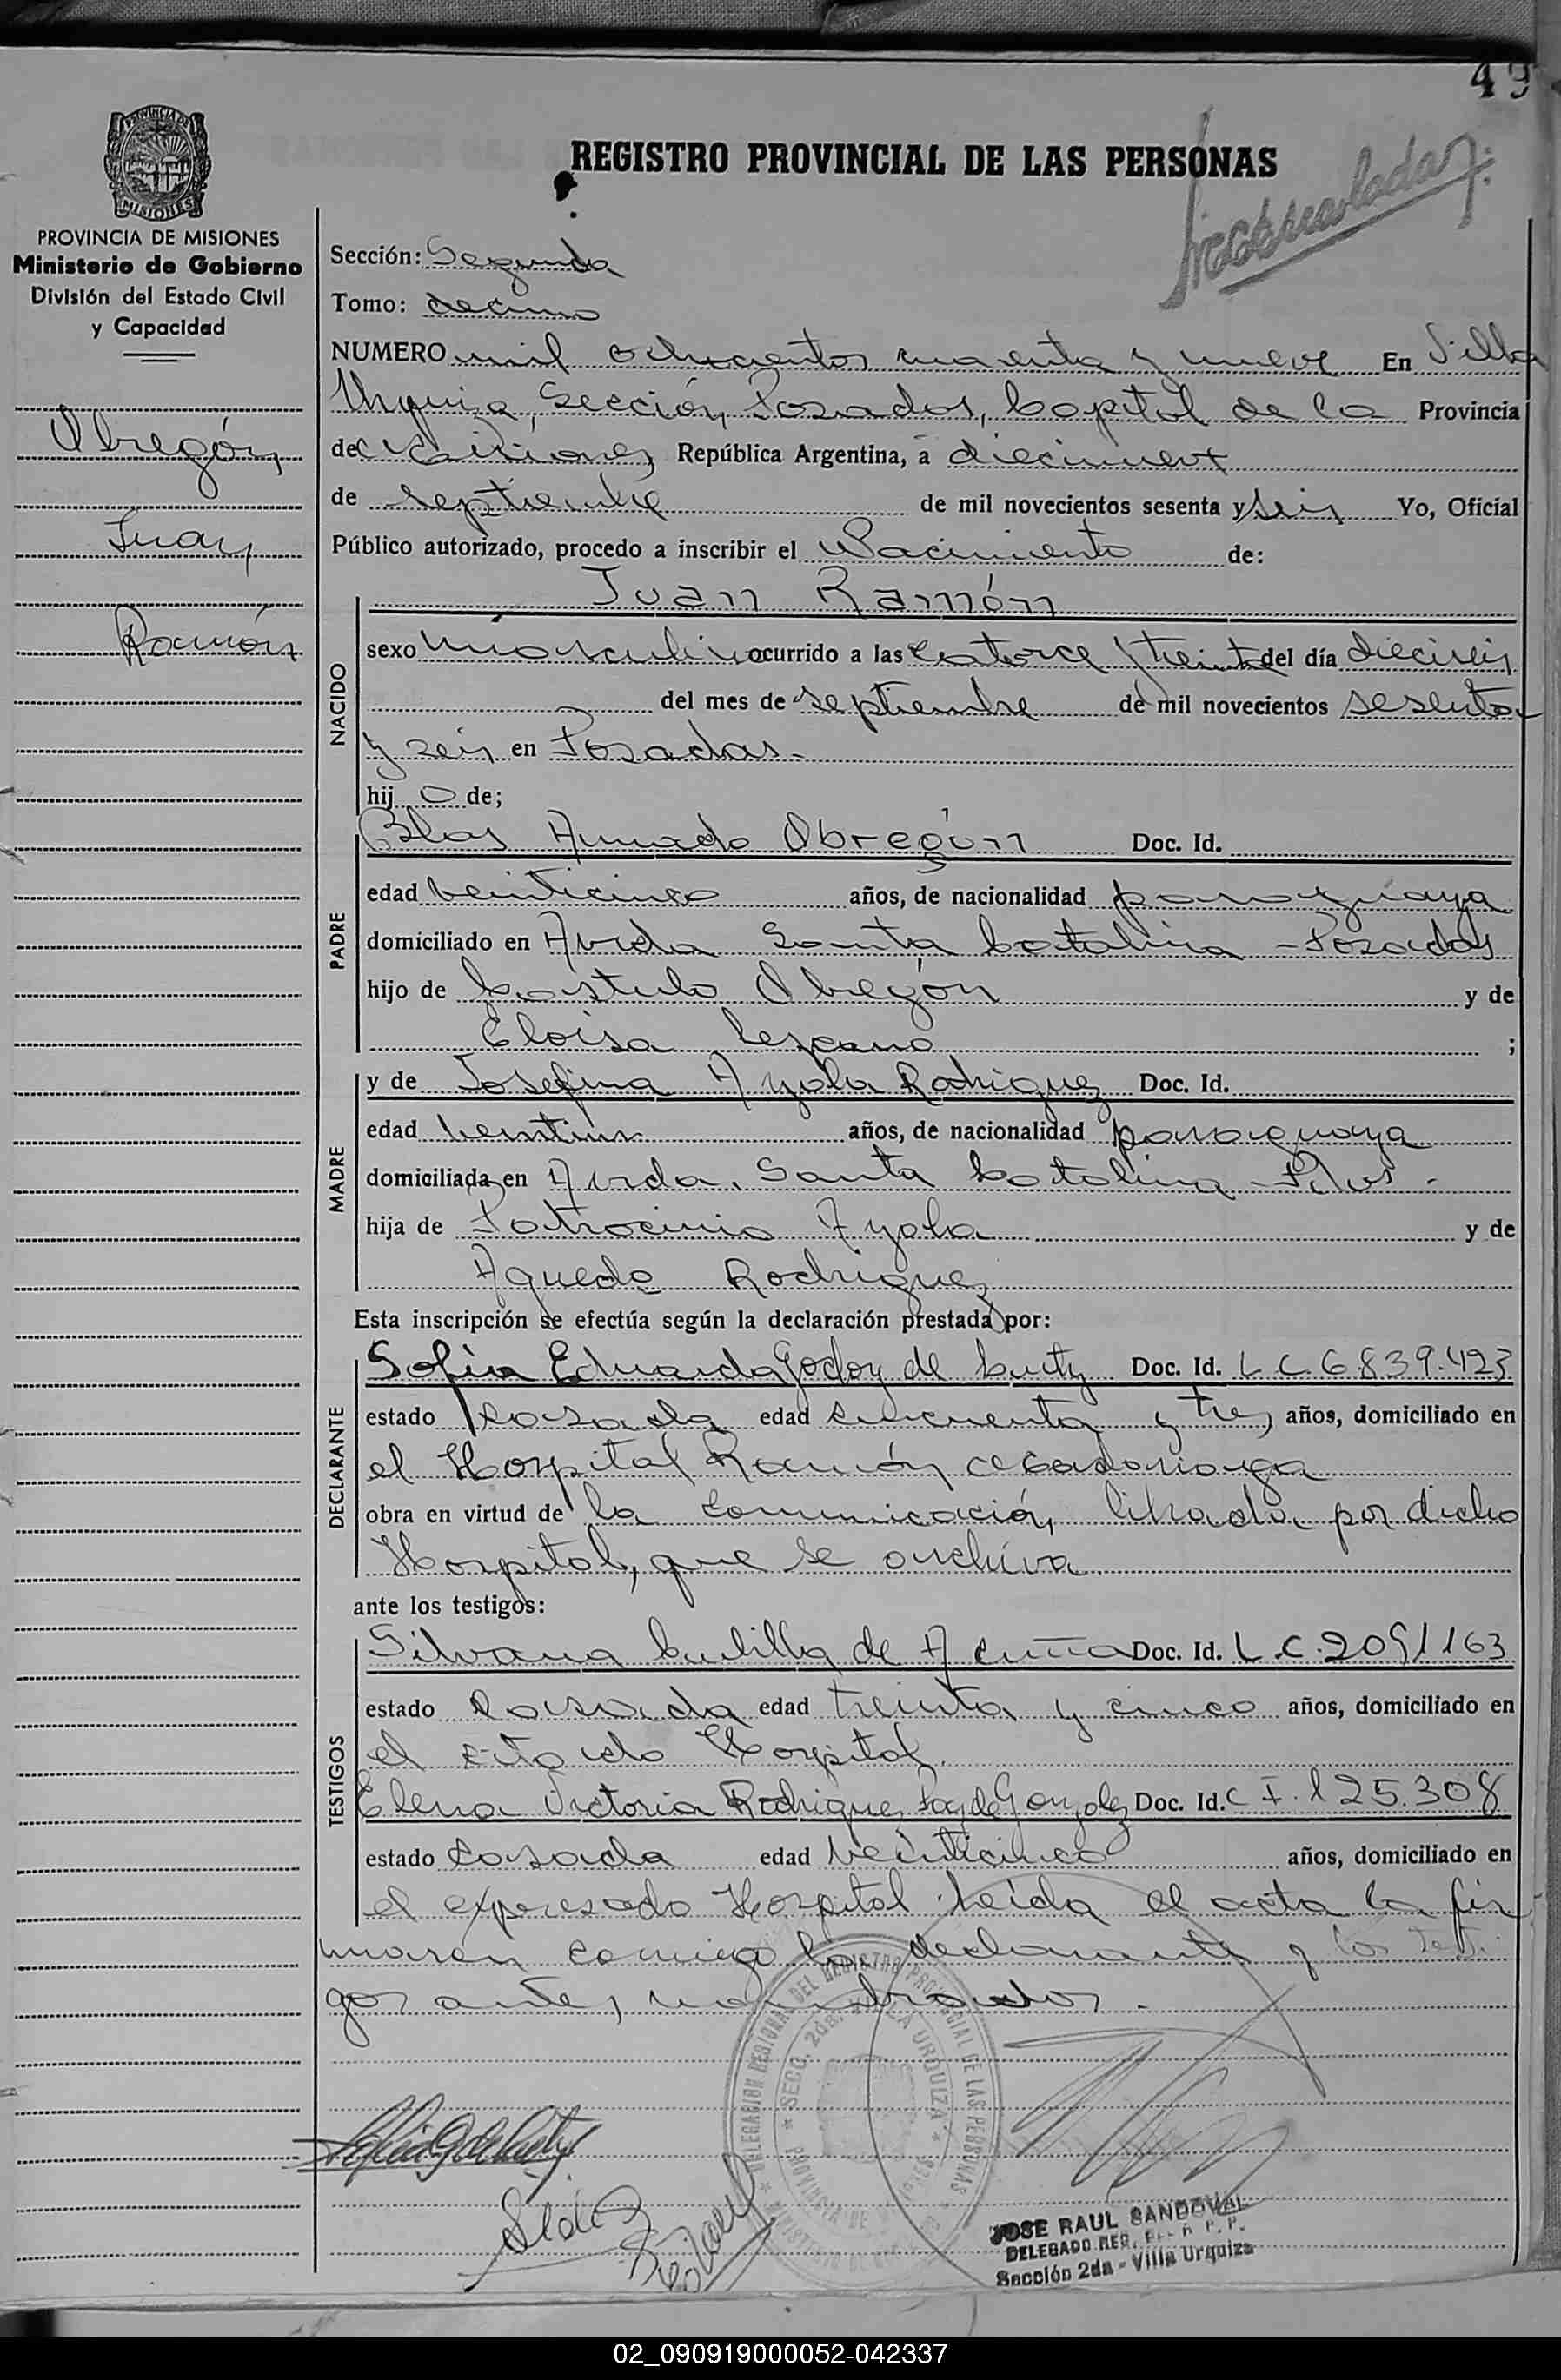 49
PROVINCIA DE
MISIONES
PROVINCIA DE MISIONES
Ministerio de Gobierno
División del Estado Civil
y Capacidad
Obregón
Juan
Ramón
REGISTRO PROVINCIAL DE LAS PERSONAS
Sección: Segunda
Tomo: decimo
NUMERO mil ochocientos cuarenta y nueve En Villa
Urquiza Sección, Posadas, Capital de la Provincia
de Misiones República Argentina, a diecinueve
de septiembre de mil novecientos sesenta y seis Yo, Oficial
Público autorizado, procedo a inscribir el Nacimiento de:
Juan Ramón
NACIDO
sexo Masculino ocurrido a las catorce y treinta del día dieciseis
del mes de septiembre de mil novecientos sesenta
y seis en Posadas.
hij o de;
PADRE
Blas Amado Obregón Doc. Id.
edad veinticinco años, de nacionalidad paraguaya
domiciliado en Avda Santa Catalina - Posadas
hijo de Castulo Obregón y de
Eloisa Lezcano ;
MADRE
y de Josefina Ayala Rodriguez Doc. Id.
edad veintiun años, de nacionalidad paraguaya
domiciliada en Avda. Santa Catalina - Pdas.
hija de Patrocinio Ayala y de
Agueda Rodriguez
Esta inscripción se efectúa según la declaración prestada por:
DECLARANTE
Sofia Eduarda Godoy de Doc. Id. L C 6.839.423
estado Casada edad cincuenta y tres años, domiciliado en
el Hospital Ramón Madariaga
obra en virtud de la comunicación librada por dicho
Hospital, que se archiva
ante los testigos:
TESTIGOS
Silvana de Acuña Doc. Id. L.C. 2091163
estado Casada edad treinta y cinco años, domiciliado en
el citado Hospital.
Elena Victoria Rodriguez Paz de Gonzalez Doc. Id. C I. 125.308
estado Casada edad veinticinco años, domiciliado en
el expresado Hospital. Leída el acta la fir
maron conmigo la declarante y los testi
gos antes nombrados.
DELEGACION REGIONAL DEL REGISTRO PROVINCIAL DE LAS PERSONAS
SECC. 2da. VILLA URQUIZA
PROVINCIA DE MISIONES
JOSE RAUL SANDOVAL
DELEGADO REG. DEL R. P. P.
Sección 2da - Villa Urquiza
02_090919000052-042337